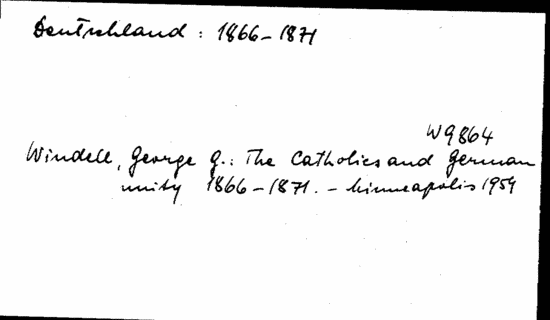 Deutschland : 1866-1871
W9864
Windell, George G.: The Catholics and German
unity 1866-1871. - Minneapolis 1954